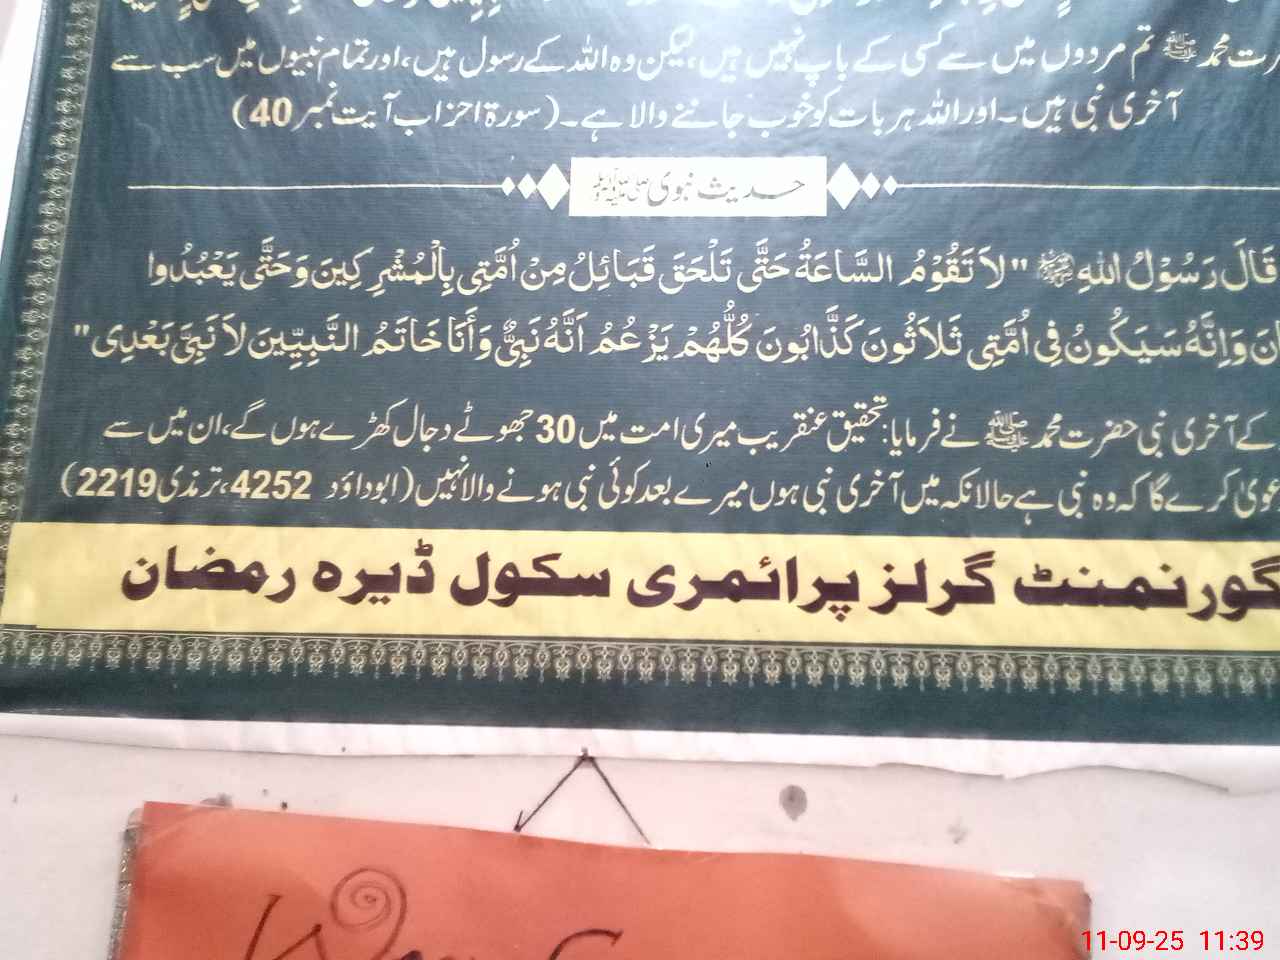 حضرت محمد ﷺ تم مردوں میں سے کسی کے باپ نہیں ہیں، لیکن وہ اللہ کے رسول ہیں، اور تمام نبیوں میں سب سے
آخری نبی ہیں۔ اور اللہ ہر بات کو خوب جاننے والا ہے۔ (سورۃ احزاب آیت نمبر 40)
حدیث نبوی ﷺ
قَالَ رَسُوْلُ اللهِ ﷺ "لاَ تَقُوْمُ السَّاعَةُ حَتَّى تَلْحَقَ قَبَائِلُ مِنْ اُمَّتِى بِالْمُشْرِكِينَ وَحَتَّى يَعْبُدُوا
وَاِنَّهُ سَيَكُونُ فِى اُمَّتِى ثَلاَثُونَ كَذَّابُونَ كُلُّهُمْ يَزْعُمُ اَنَّهُ نَبِىٌّ وَأَنَا خَاتَمُ النَّبِيِّينَ لاَ نَبِىَّ بَعْدِى"
کے آخری نبی حضرت محمد ﷺ نے فرمایا: تحقیق عنقریب میری امت میں 30 جھوٹے دجال کھڑے ہوں گے، ان میں سے
کرے گا کہ وہ نبی ہے حالانکہ میں آخری نبی ہوں میرے بعد کوئی نبی ہونے والا نہیں (ابوداؤد 4252، ترمذی 2219)
گورنمنٹ گرلز پرائمری سکول ڈیرہ رمضان
11-09-25 11:39